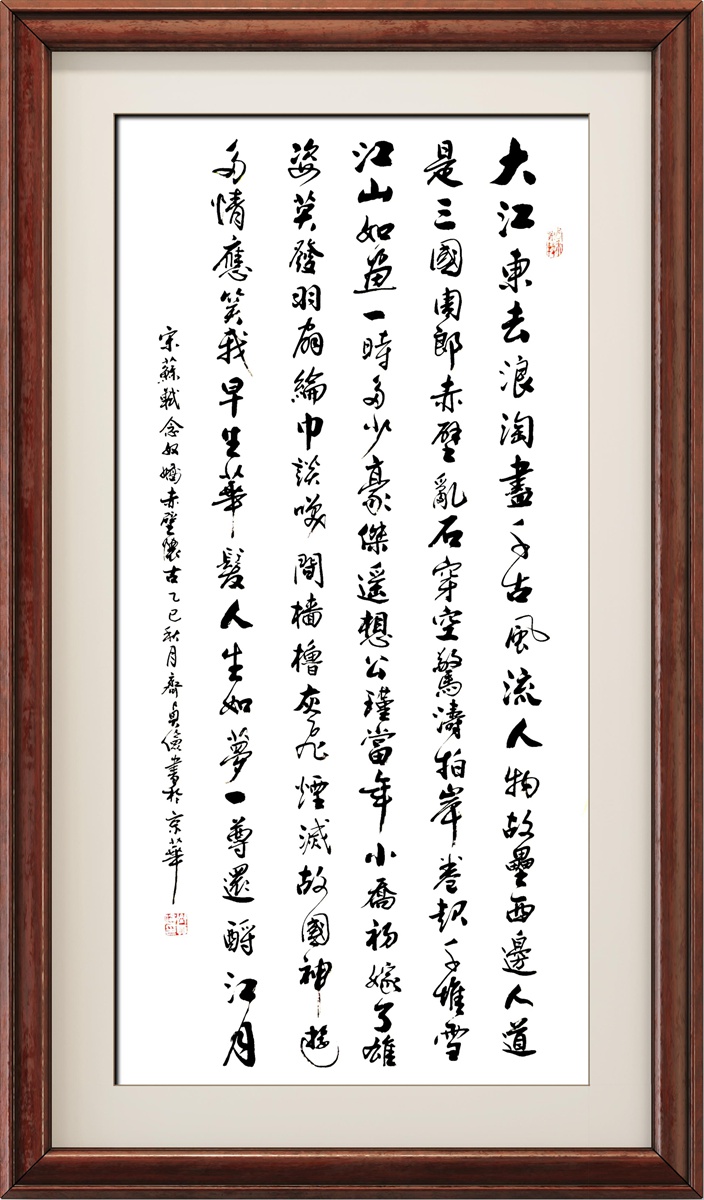 大江東去浪淘盡千古風流人物故壘西邊人道
是三國周郎赤壁亂石穿空驚濤拍岸卷起千堆雪
江山如畫一時多少豪傑遥想公瑾當年小喬初嫁了雄
姿英發羽扇綸巾談咲間檣櫓灰飛煙滅故國神遊
多情應笑我早生華髮人生如夢一尊還酹江月
宋蘇軾念奴嬌赤壁懷古乙巳秋月齊貞儉書於京華